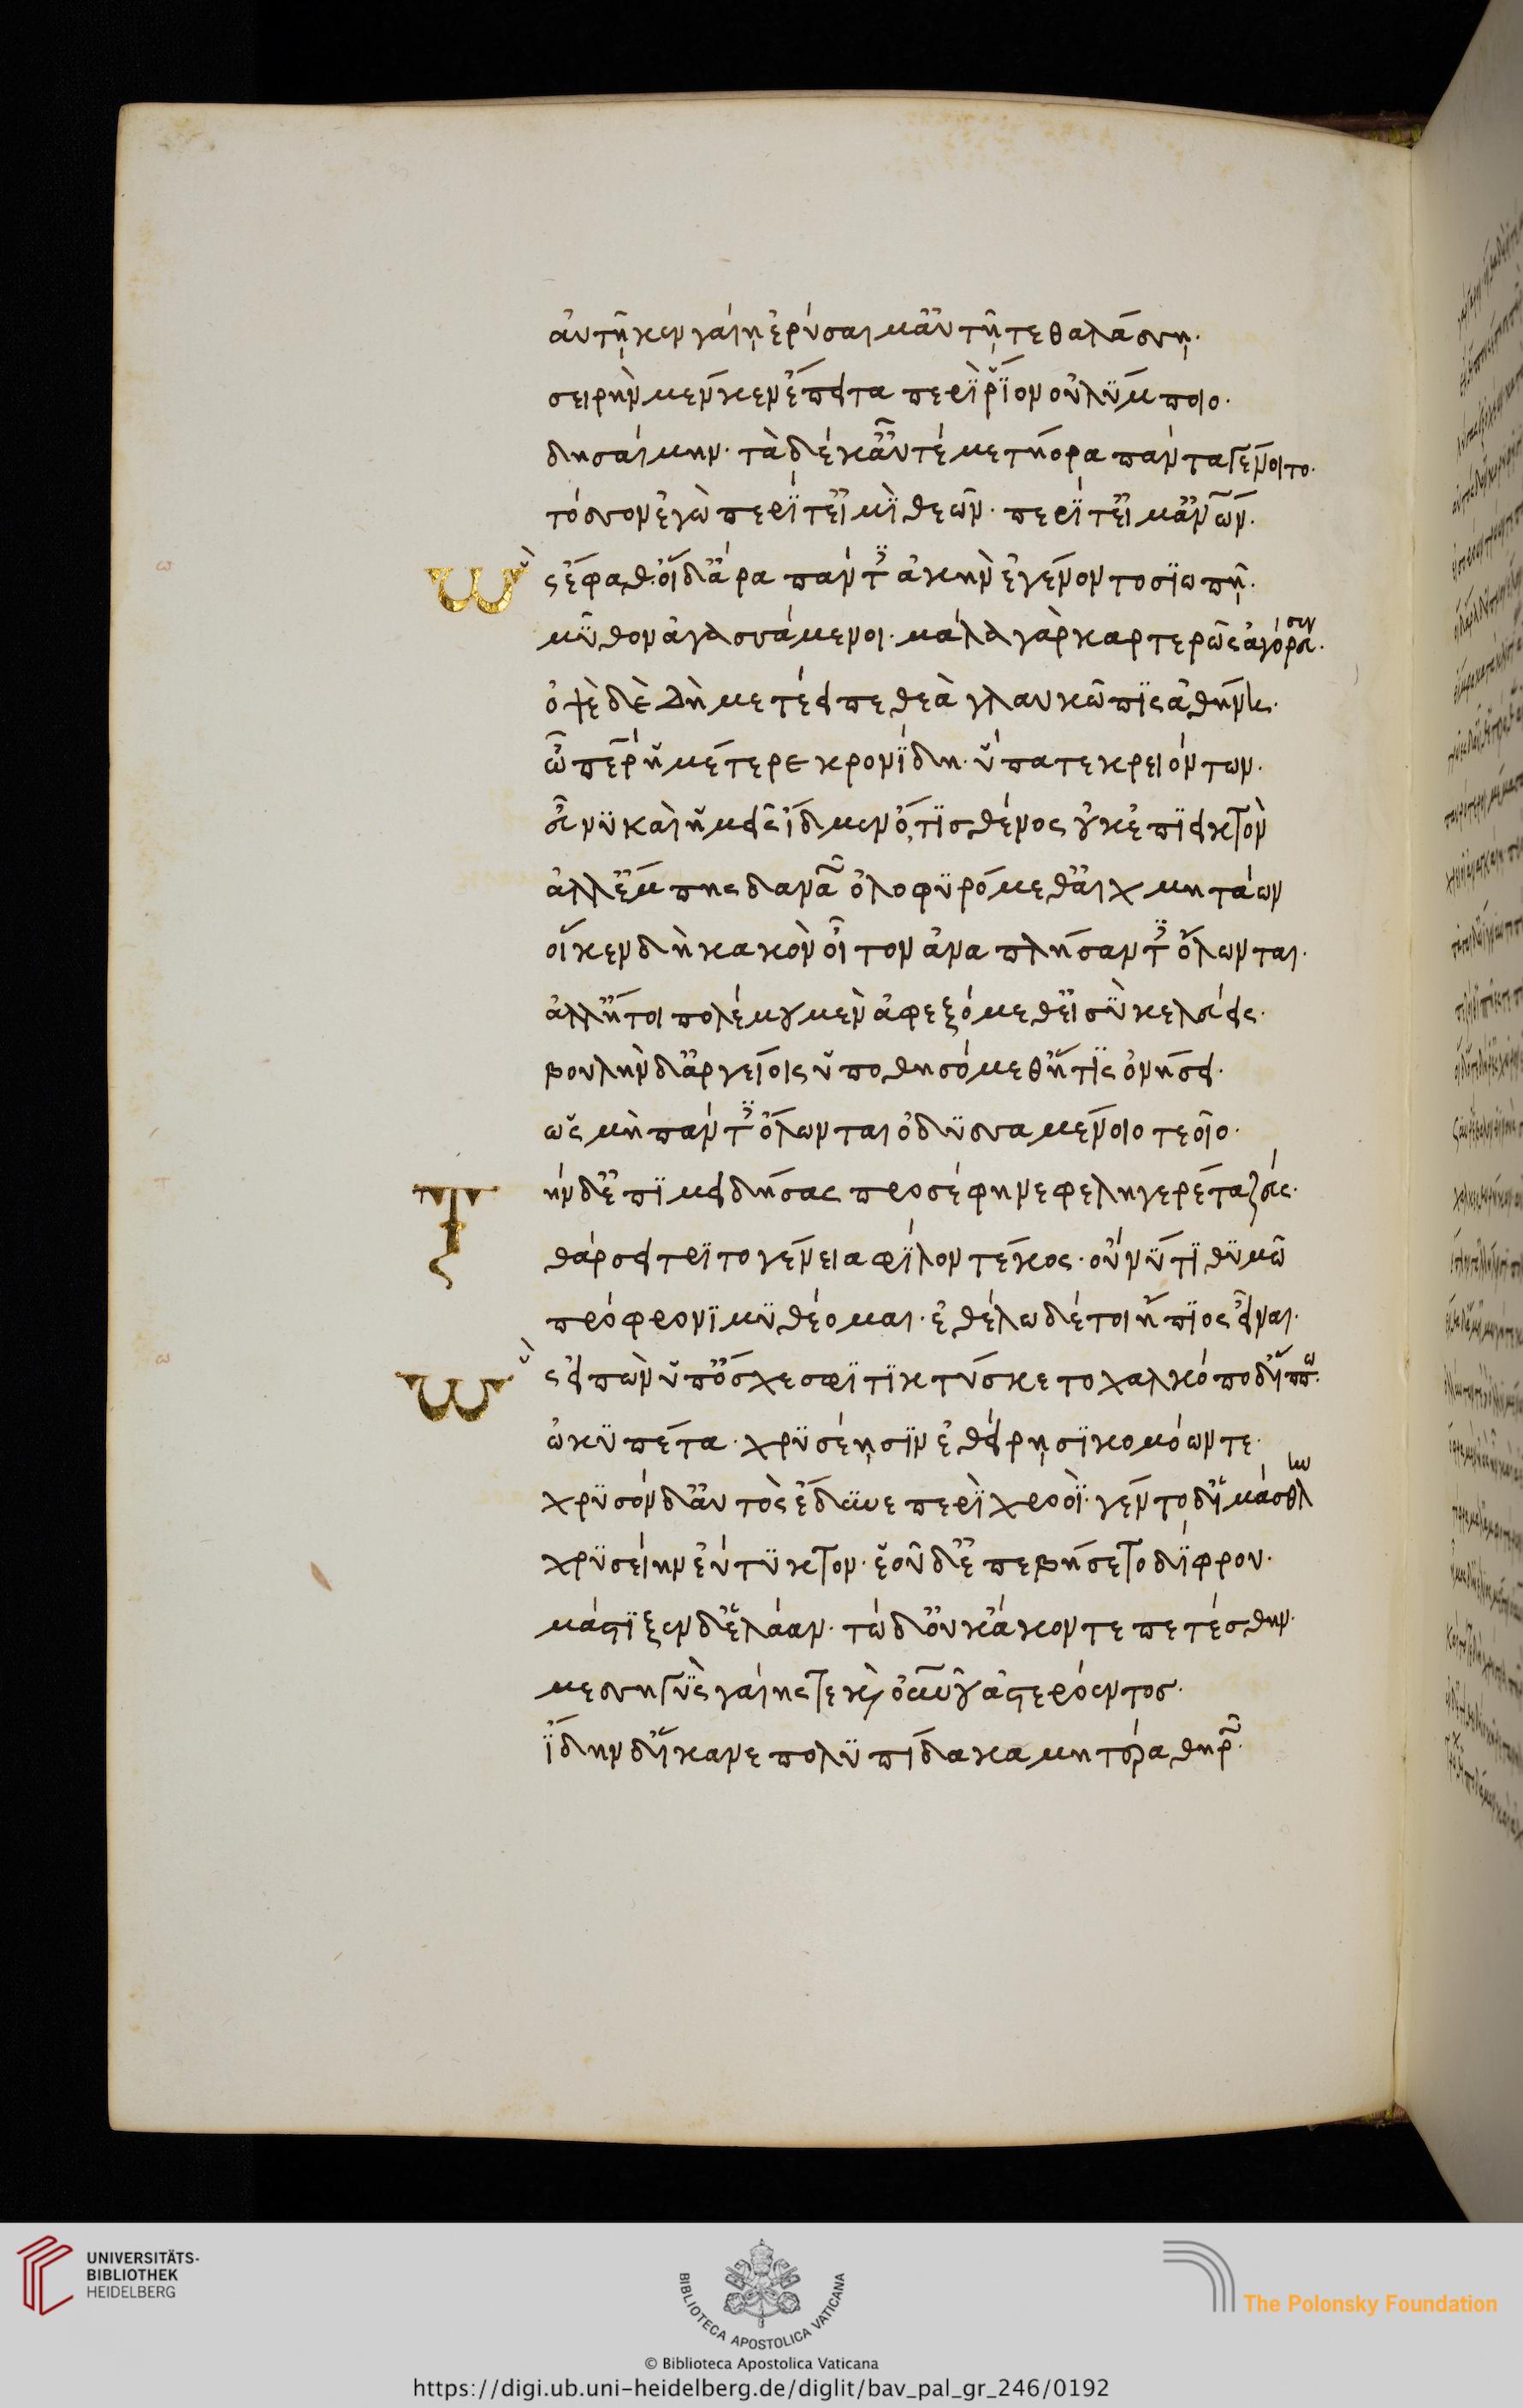 αὐτῇ κεν γαίῃ ἐρύσαιμ' αὐτῇ τε θαλάσσῃ·
σειρὴν μέν κεν ἔπειτα περὶ ῥίον οὐλύμποιο·
δησαίμην· τὰ δέ κ' αὖτε μετήορα πάντα γένοιτο·
τόσσον ἐγὼ περί τ' εἰμὶ θεῶν· περί τ' εἴμ' ἀνθρώπων·
Ὣς ἔφαθ' οἱ δ' ἄρα πάντες ἀκὴν ἐγένοντο σιωπῇ·
μῦθον ἀγασσάμενοι· μάλα γὰρ κρατερῶς ἀγόρευσεν·
ὀψὲ δὲ δὴ μετέειπε θεὰ γλαυκῶπις ἀθήνη·
ὦ πάτερ ἡμέτερε κρονίδη· ὕπατε κρειόντων·
εὖ νυ καὶ ἡμεῖς ἴδμεν ὅ τοι σθένος οὐκ ἐπιεικτόν
ἀλλ' ἔμπης δαναῶν ὀλοφυρόμεθ' αἰχμητάων
οἵ κεν δὴ κακὸν οἶτον ἀναπλήσαντες ὄλωνται·
ἀλλ' ἤτοι πολέμου μὲν ἀφεξόμεθ' εἰ σὺ κελεύεις·
βουλὴν δ' ἀργείοις ὑποθησόμεθ' ἥτις ὀνήσει·
ὡς μὴ πάντες ὄλωνται ὀδυσσαμένοιο τεοῖο·
Τὴν δ' ἐπιμειδήσας προσέφη νεφεληγερέτα ζεύς·
θάρσει τριτογένεια φίλον τέκος· οὔ νύ τι θυμῷ
πρόφρονι μυθέομαι· ἐθέλω δέ τοι ἤπιος εἶναι·
Ὣς εἰπὼν ὑπ' ὄχεσφι τιτύσκετο χαλκόποδ' ἵππω·
ὠκυπέτα· χρυσέῃσιν ἐθείρῃσι κομόωντε·
χρυσὸν δ' αὐτὸς ἔδυνε περὶ χροΐ· γέντο δ' ἱμάσθλην
χρυσείην εὔτυκτον· ἑοῦ δ' ἐπεβήσετο δίφρου·
μάστιξεν δ' ἐλάαν· τὼ δ' οὐκ ἄκοντε πετέσθην·
μεσσηγὺς γαίης τε καὶ οὐρανοῦ ἀστερόεντος·
ἴδην δ' ἵκανε πολυπίδακα μητέρα θηρῶν·
UNIVERSITÄTS-
BIBLIOTHEK
HEIDELBERG
BIBLIOTECA APOSTOLICA VATICANA
© Biblioteca Apostolica Vaticana
The Polonsky Foundation
https://digi.ub.uni-heidelberg.de/diglit/bav_pal_gr_246/0192